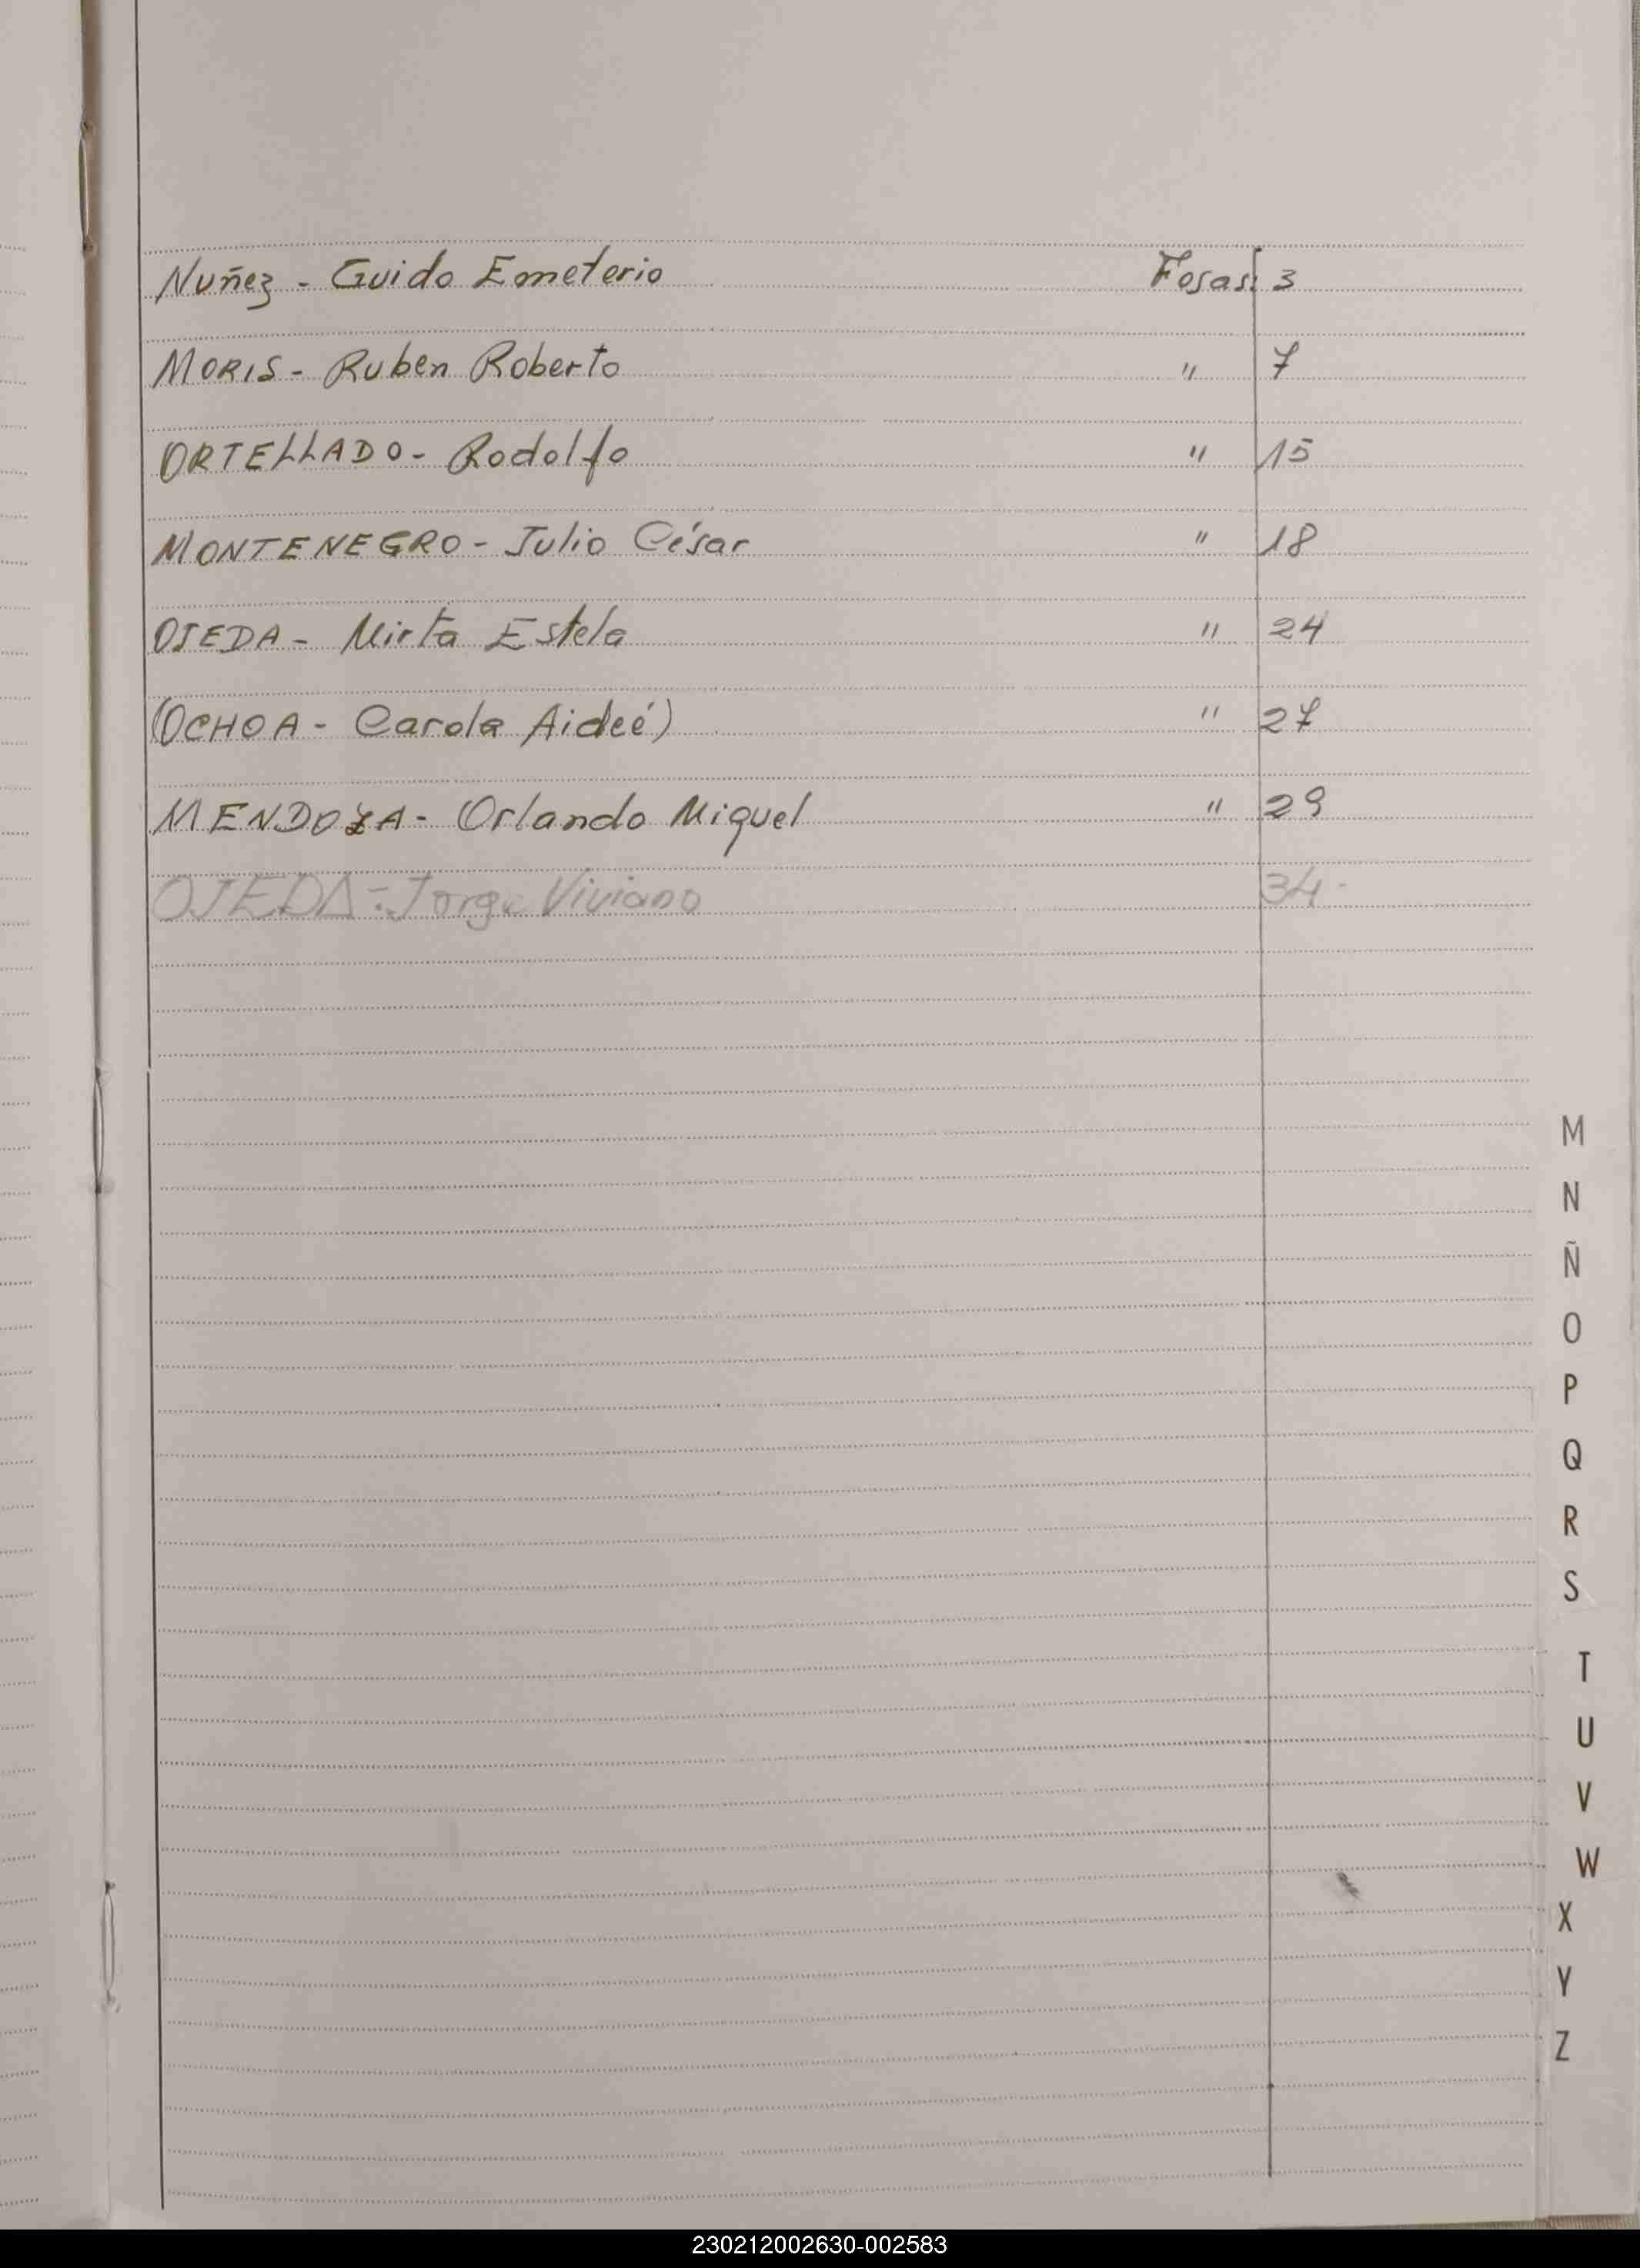 Nuñez - Guido Emeterio Fosas 3
MORIS - Ruben Roberto " 7
ORTELLADO - Rodolfo " 15
MONTENEGRO - Julio César " 18
OJEDA - Mirta Estela " 24
(OCHOA - Carola Aideé) " 27
MENDOZA - Orlando Miguel " 29
OJEDA - Jorge Viviano 34 -
M
N
Ñ
O
P
Q
R
S
T
U
V
W
X
Y
Z
230212002630-002583